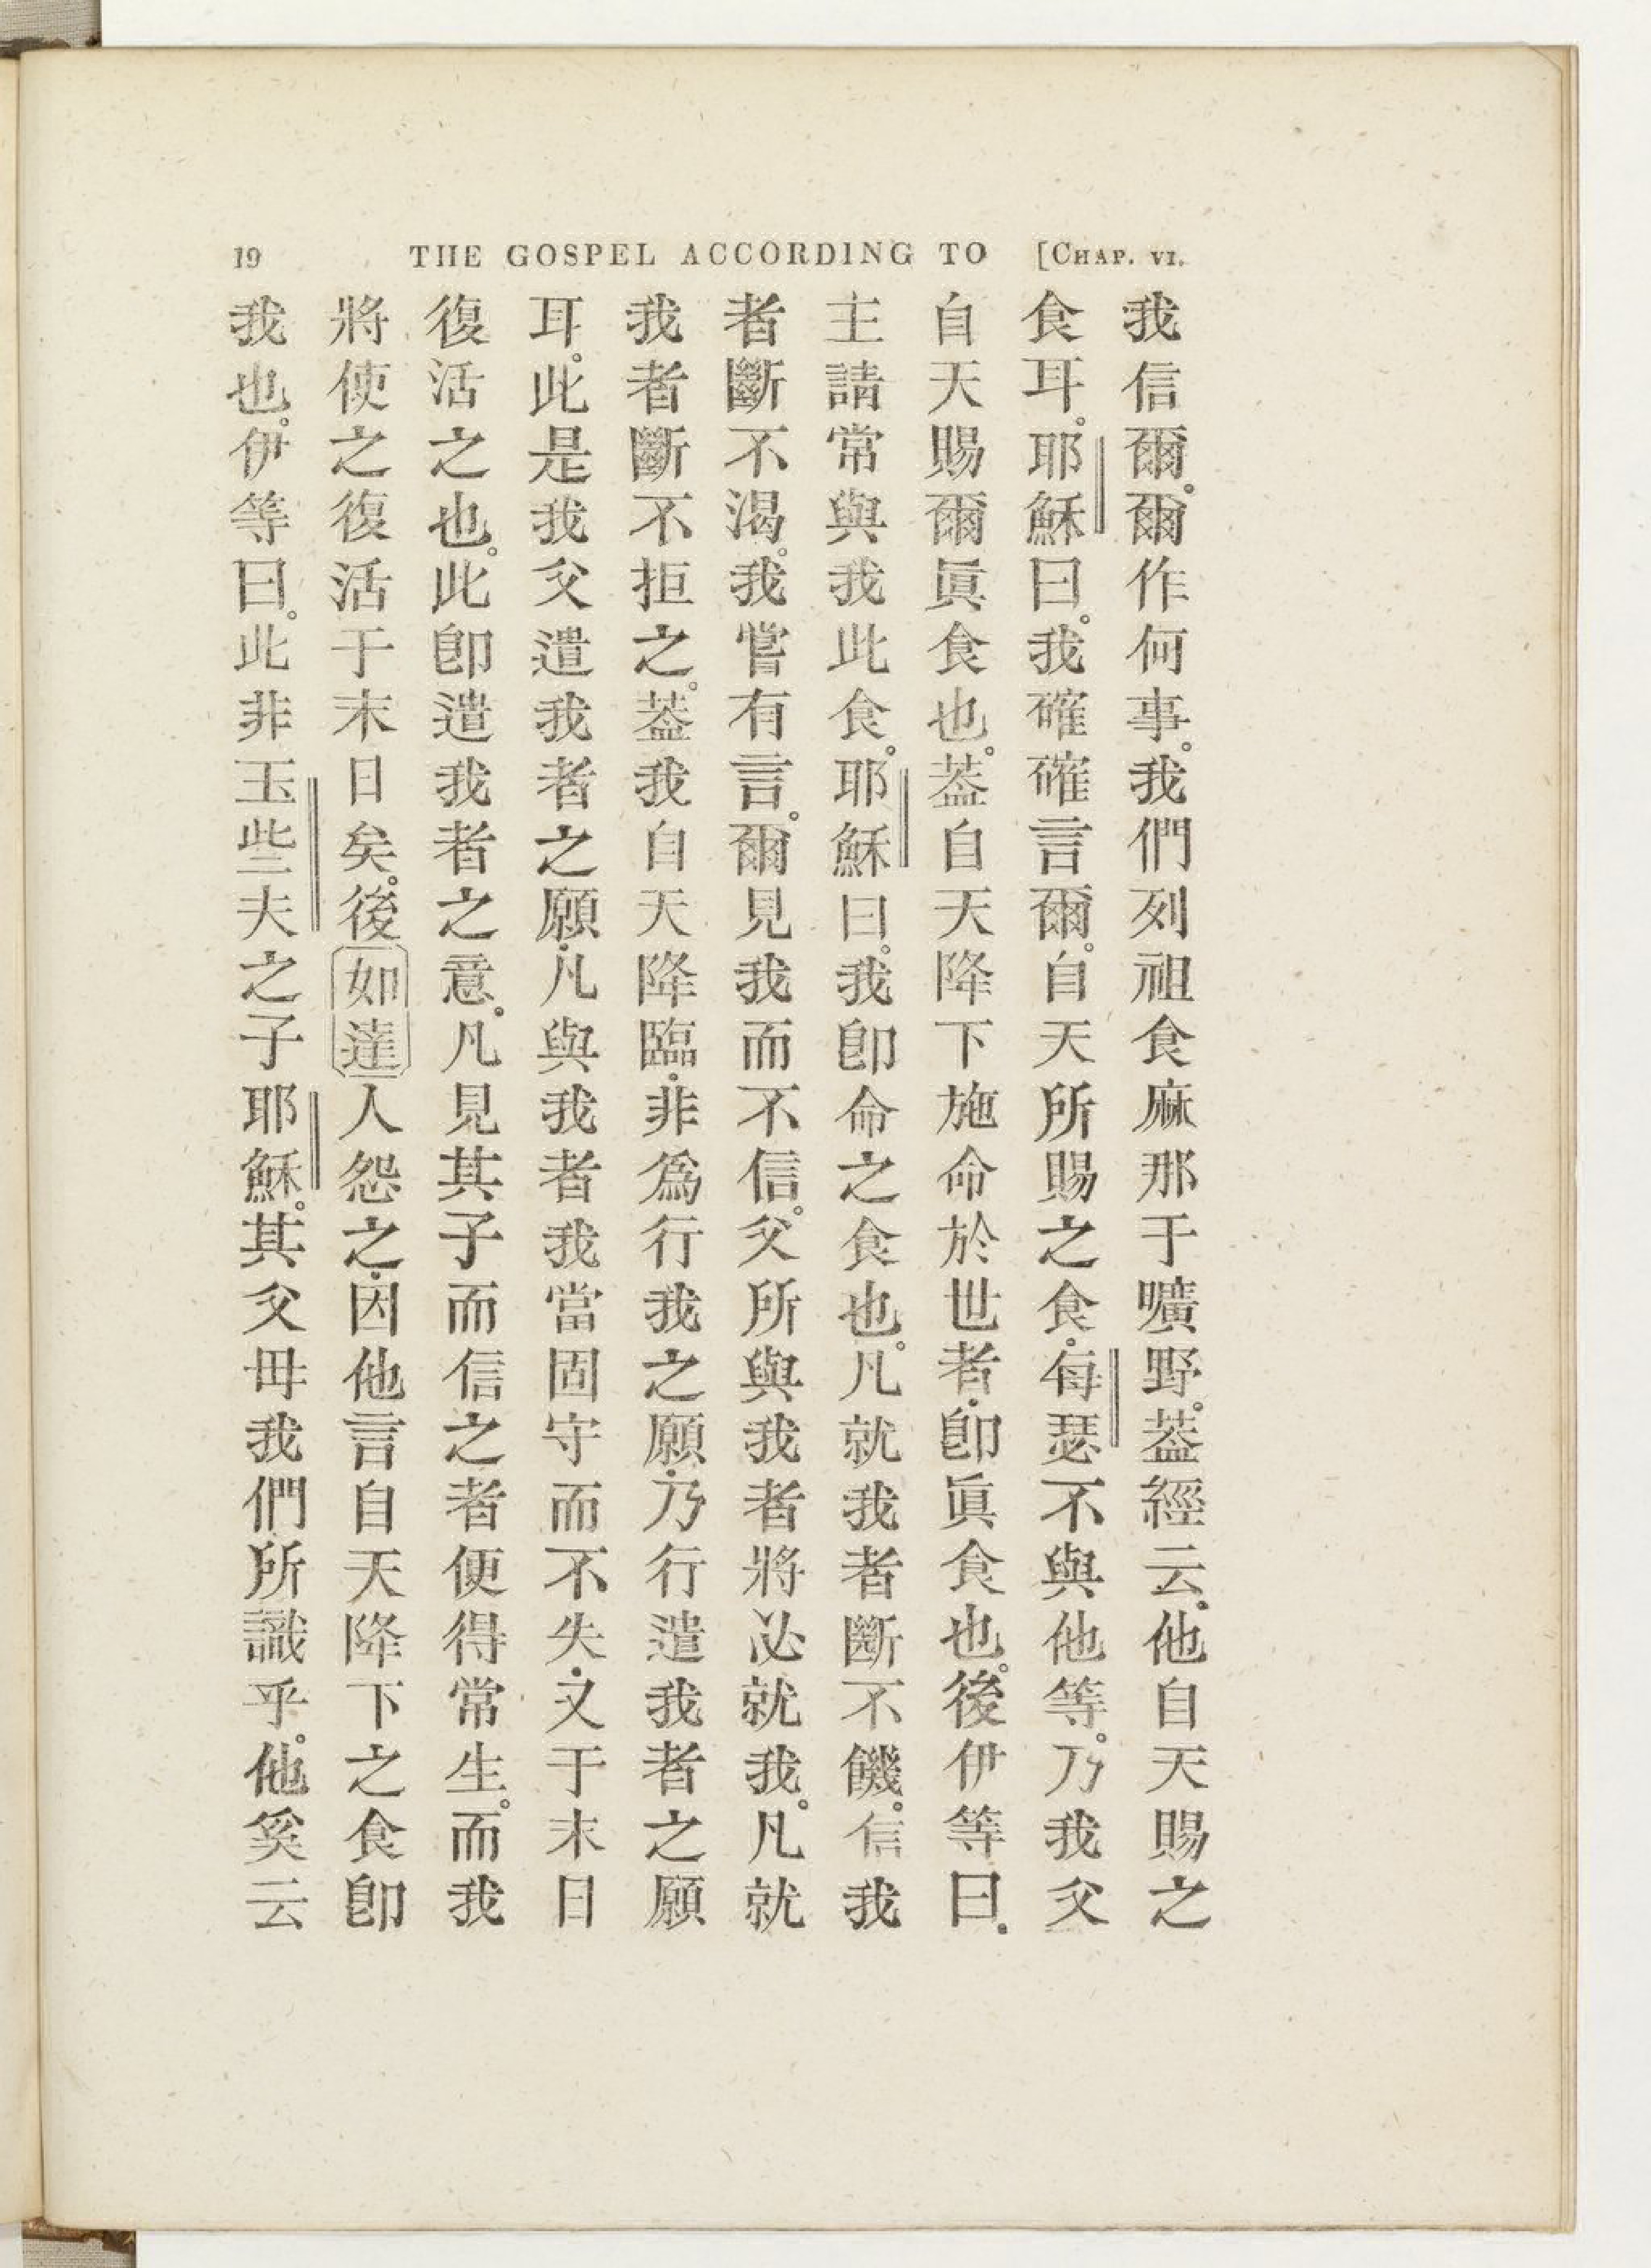 19 THE GOSPEL ACCORDING TO [CHAP. VI.
我信爾。爾作何事。我們列祖食麻那于嚝野。葢經云。他自天賜之
食耳。耶穌曰。我確確言爾。自天所賜之食。每瑟不與他等。乃我父
自天賜爾眞食也。葢自天降下施命於世者。卽眞食也。後伊等曰。
主請常與我此食。耶穌曰。我卽命之食也。凡就我者斷不饑。信我
者斷不渴。我嘗有言。爾見我而不信。父所與我者將必就我。凡就
我者斷不拒之。葢我自天降臨。非爲行我之願。乃行遣我者之願
耳。此是我父遣我者之願。凡與我者我當固守而不失。又于末日
復活之也。此卽遣我者之意。凡見其子而信之者便得常生。而我
將使之復活于末日矣。後如達人怨之。因他言自天降下之食卽
我也。伊等曰。此非玉些夫之子耶穌。其父毌我們所識乎。他奚云